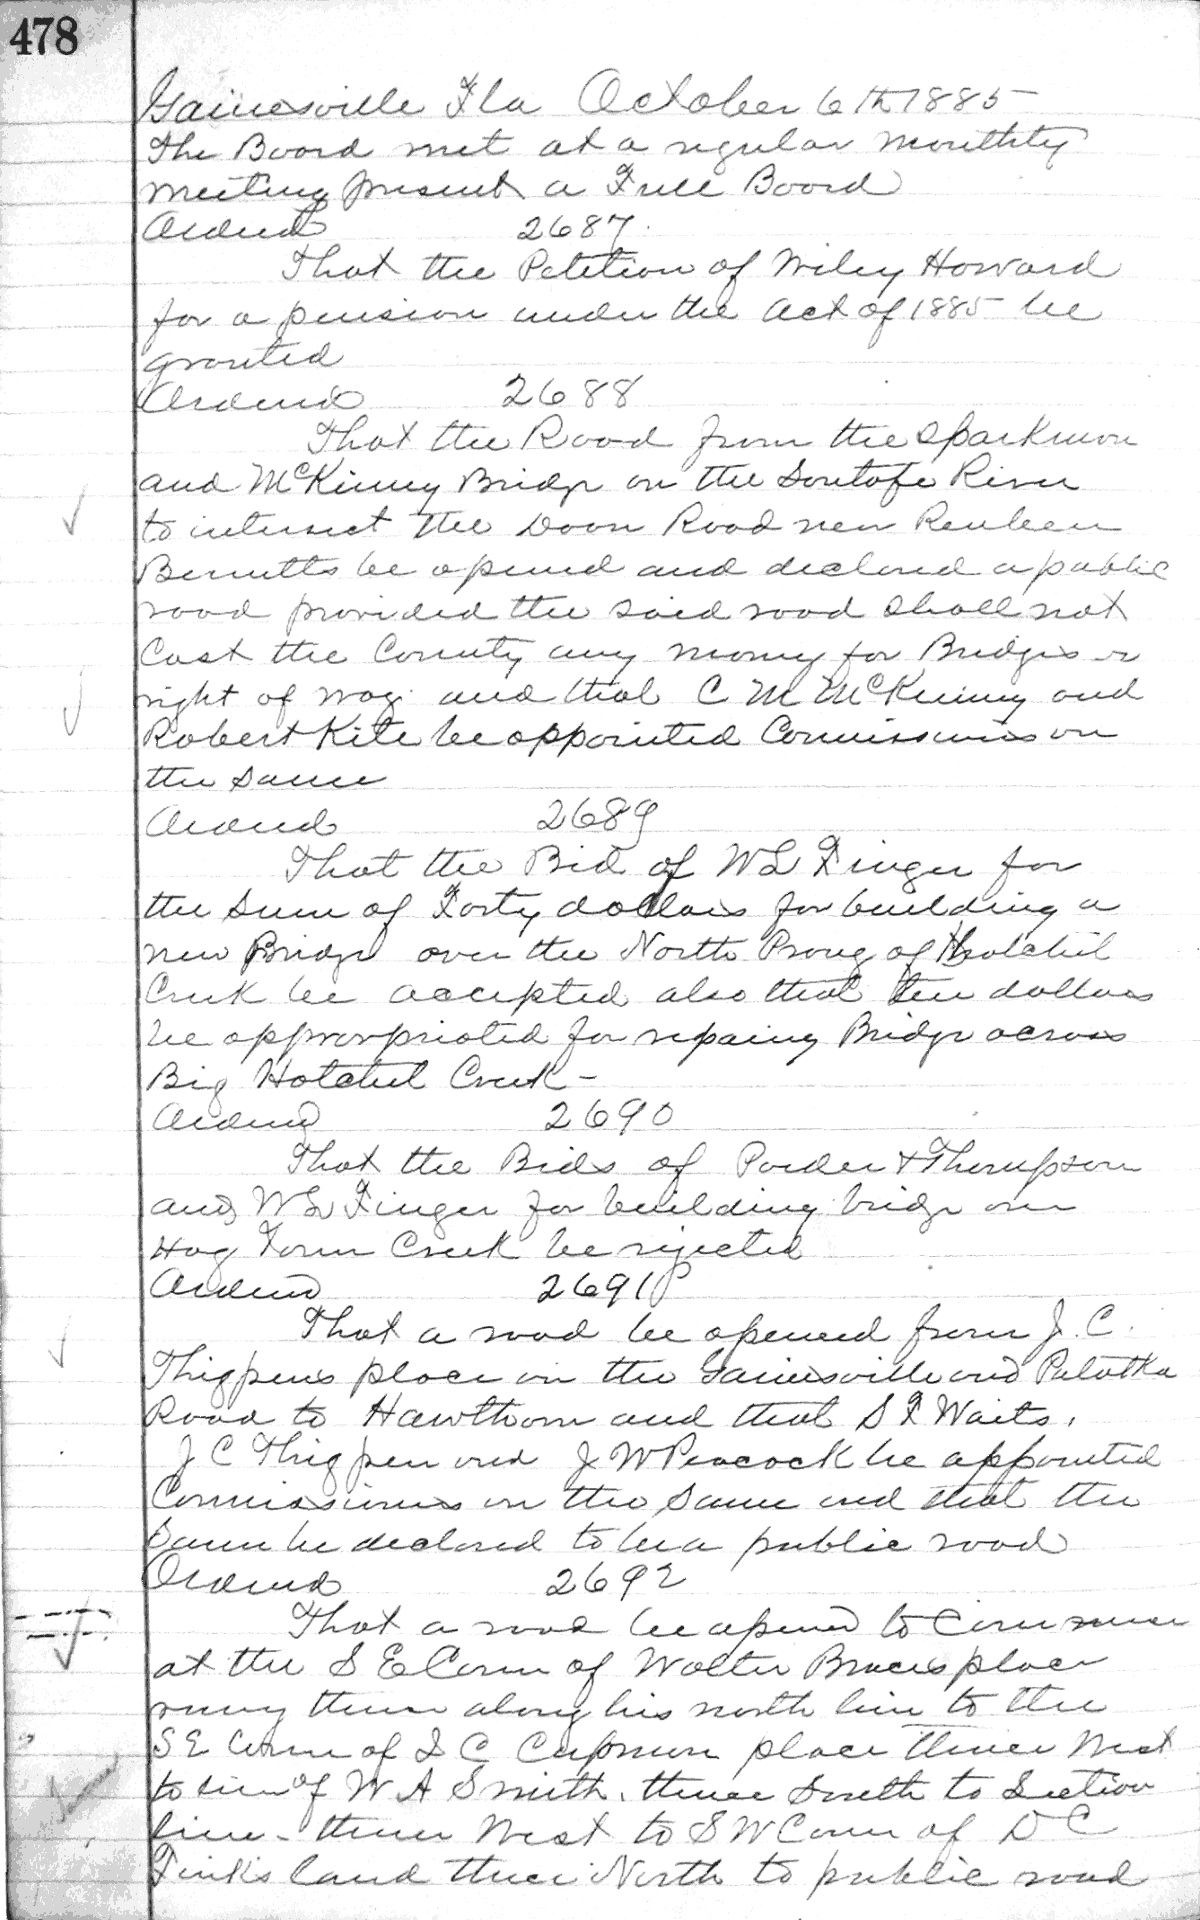 478
Gainesville Fla October 6th 1885
The Board met at a regular monthly
meeting present a Full Board
Ordered 2687
That the Petition of Wiley Howard
for a pension under the act of 1885 be
granted
Ordered 2688
That the Road from the Sparkman
and McKinney Bridge on the Santafe River
to intersect the Road near Reuben
Bennetts be opened and declared a public
road provided the said road shall not
Cost the County any money for Bridges or
right of way and that C M McKinney and
Robert Kite be appointed Commissioners on
the same
Ordered 2689
That the Bid of W L Finger for
the sum of Forty dollars for building a
new Bridge over the North Prong of Hatchet
Creek be accepted also that ten dollars
be appropriated for repairing Bridge across
Big Hatchet Creek -
Ordered 2690
That the Bids of & Thompson
and W L Finger for building bridge over
Hog Town Creek be rejected
Ordered 2691
That a road be opened from J. C.
Thigpens place on the Gainesville and Palatka
Road to Hawthorn and that S F Waits,
J C Thigpen and J W Peacock be appointed
Commissioners on the same and that the
same be declared to be a public road
Ordered 2692
That a road be opened to Commence
at the S E Corner of Walter place
runing thence along his north line to the
S E Corner of C place thence West
to line of W A Smith, thence South to Section
line - thence West to S W Corner of D C
Finks land thence North to public road